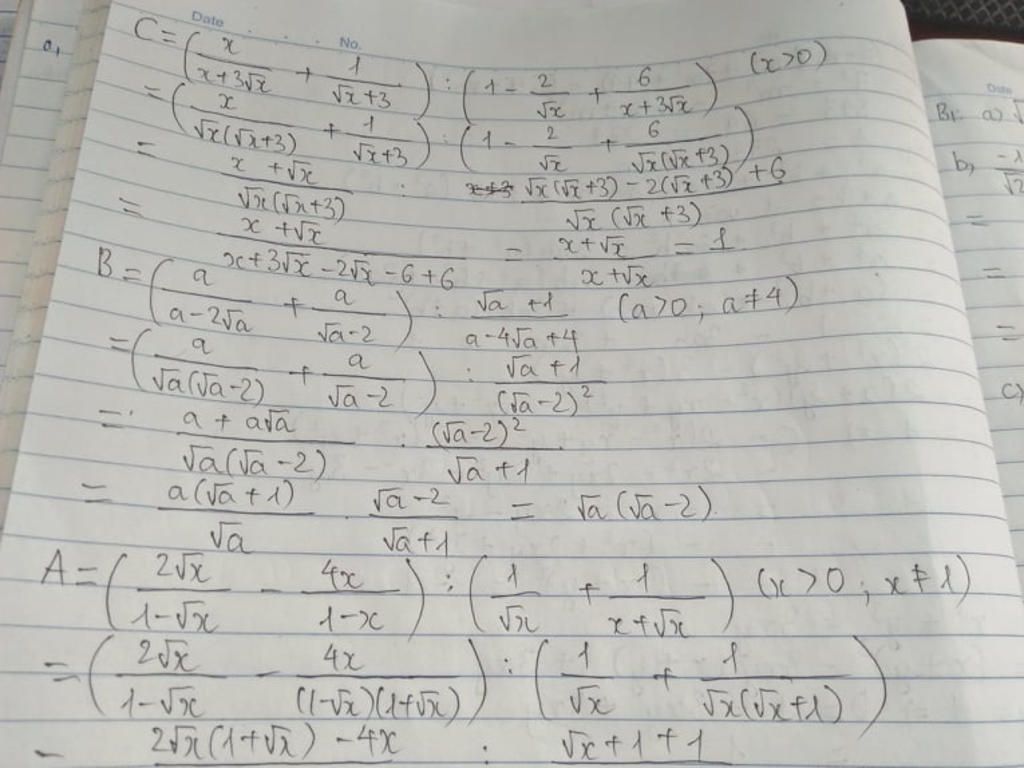 Date No.
a,
C = (x/(x+3√x) + 1/(√x+3)) : (1 - 2/√x + 6/(x+3√x)) (x>0)
= (x/(√x(√x+3)) + 1/(√x+3)) : (1 - 2/√x + 6/(√x(√x+3)))
= (x+√x)/(√x(√x+3)) : (√x(√x+3) - 2(√x+3) + 6)/(√x(√x+3))
= (x+√x)/(x+3√x-2√x-6+6) = (x+√x)/(x+√x) = 1
B = (a/(a-2√a) + a/(√a-2)) : (√a+1)/(a-4√a+4) (a>0; a≠4)
= (a/(√a(√a-2)) + a/(√a-2)) : (√a+1)/(√a-2)²
= (a+a√a)/(√a(√a-2)) · (√a-2)²/(√a+1)
= a(√a+1)/√a · (√a-2)/(√a+1) = √a(√a-2).
A = (2√x/(1-√x) - 4x/(1-x)) : (1/√x + 1/(x+√x)) (x>0; x≠1)
= (2√x/(1-√x) - 4x/((1-√x)(1+√x))) : (1/√x + 1/(√x(√x+1)))
= 2√x(1+√x) - 4x : √x+1+1
Date
B1: a) √
b, -1/√2
=
=
=
c)